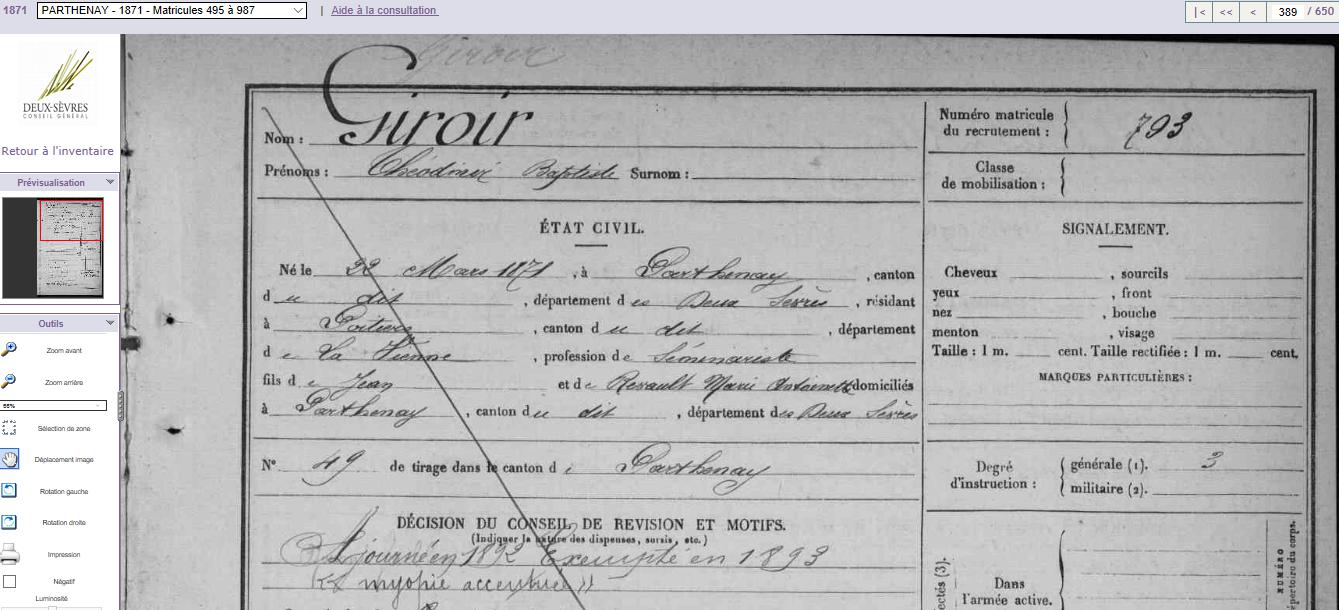 1871 PARTHENAY - 1871 - Matricules 495 à 987 | Aide à la consultation |< << < 389 / 650
DEUX-SÈVRES
CONSEIL GÉNÉRAL
Retour à l'inventaire
Prévisualisation
Outils
Zoom avant
Zoom arrière
55%
Sélection de zone
Déplacement image
Rotation gauche
Rotation droite
Impression
Négatif
Luminosité
Giroir
Nom : Giroir
Prénoms : Théodimir Baptiste Surnom :
ÉTAT CIVIL.
Né le 22 Mars 1871, à Parthenay, canton
du dit, département des Deux Sèvres, résidant
à Poitiers, canton du dit, département
de La Vienne, profession de Séminariste
fils de Jean et de Renault Marie Antoinette domiciliés
à Parthenay, canton du dit, département des Deux Sèvres
N° 49 de tirage dans le canton de Parthenay
DÉCISION DU CONSEIL DE REVISION ET MOTIFS.
(Indiquer la nature des dispenses, sursis, etc.)
Ajourné en 1892 Exempté en 1893
myopie accentuée
Numéro matricule
du recrutement : 793
Classe
de mobilisation :
SIGNALEMENT.
Cheveux , sourcils
yeux , front
nez , bouche
menton , visage
Taille : 1 m. cent. Taille rectifiée : 1 m. cent.
MARQUES PARTICULIÈRES :
Degré
d'instruction :
générale (1). 3
militaire (2).
ectés (3).
Dans
l'armée active.
NUMÉRO
répertoire du corps.